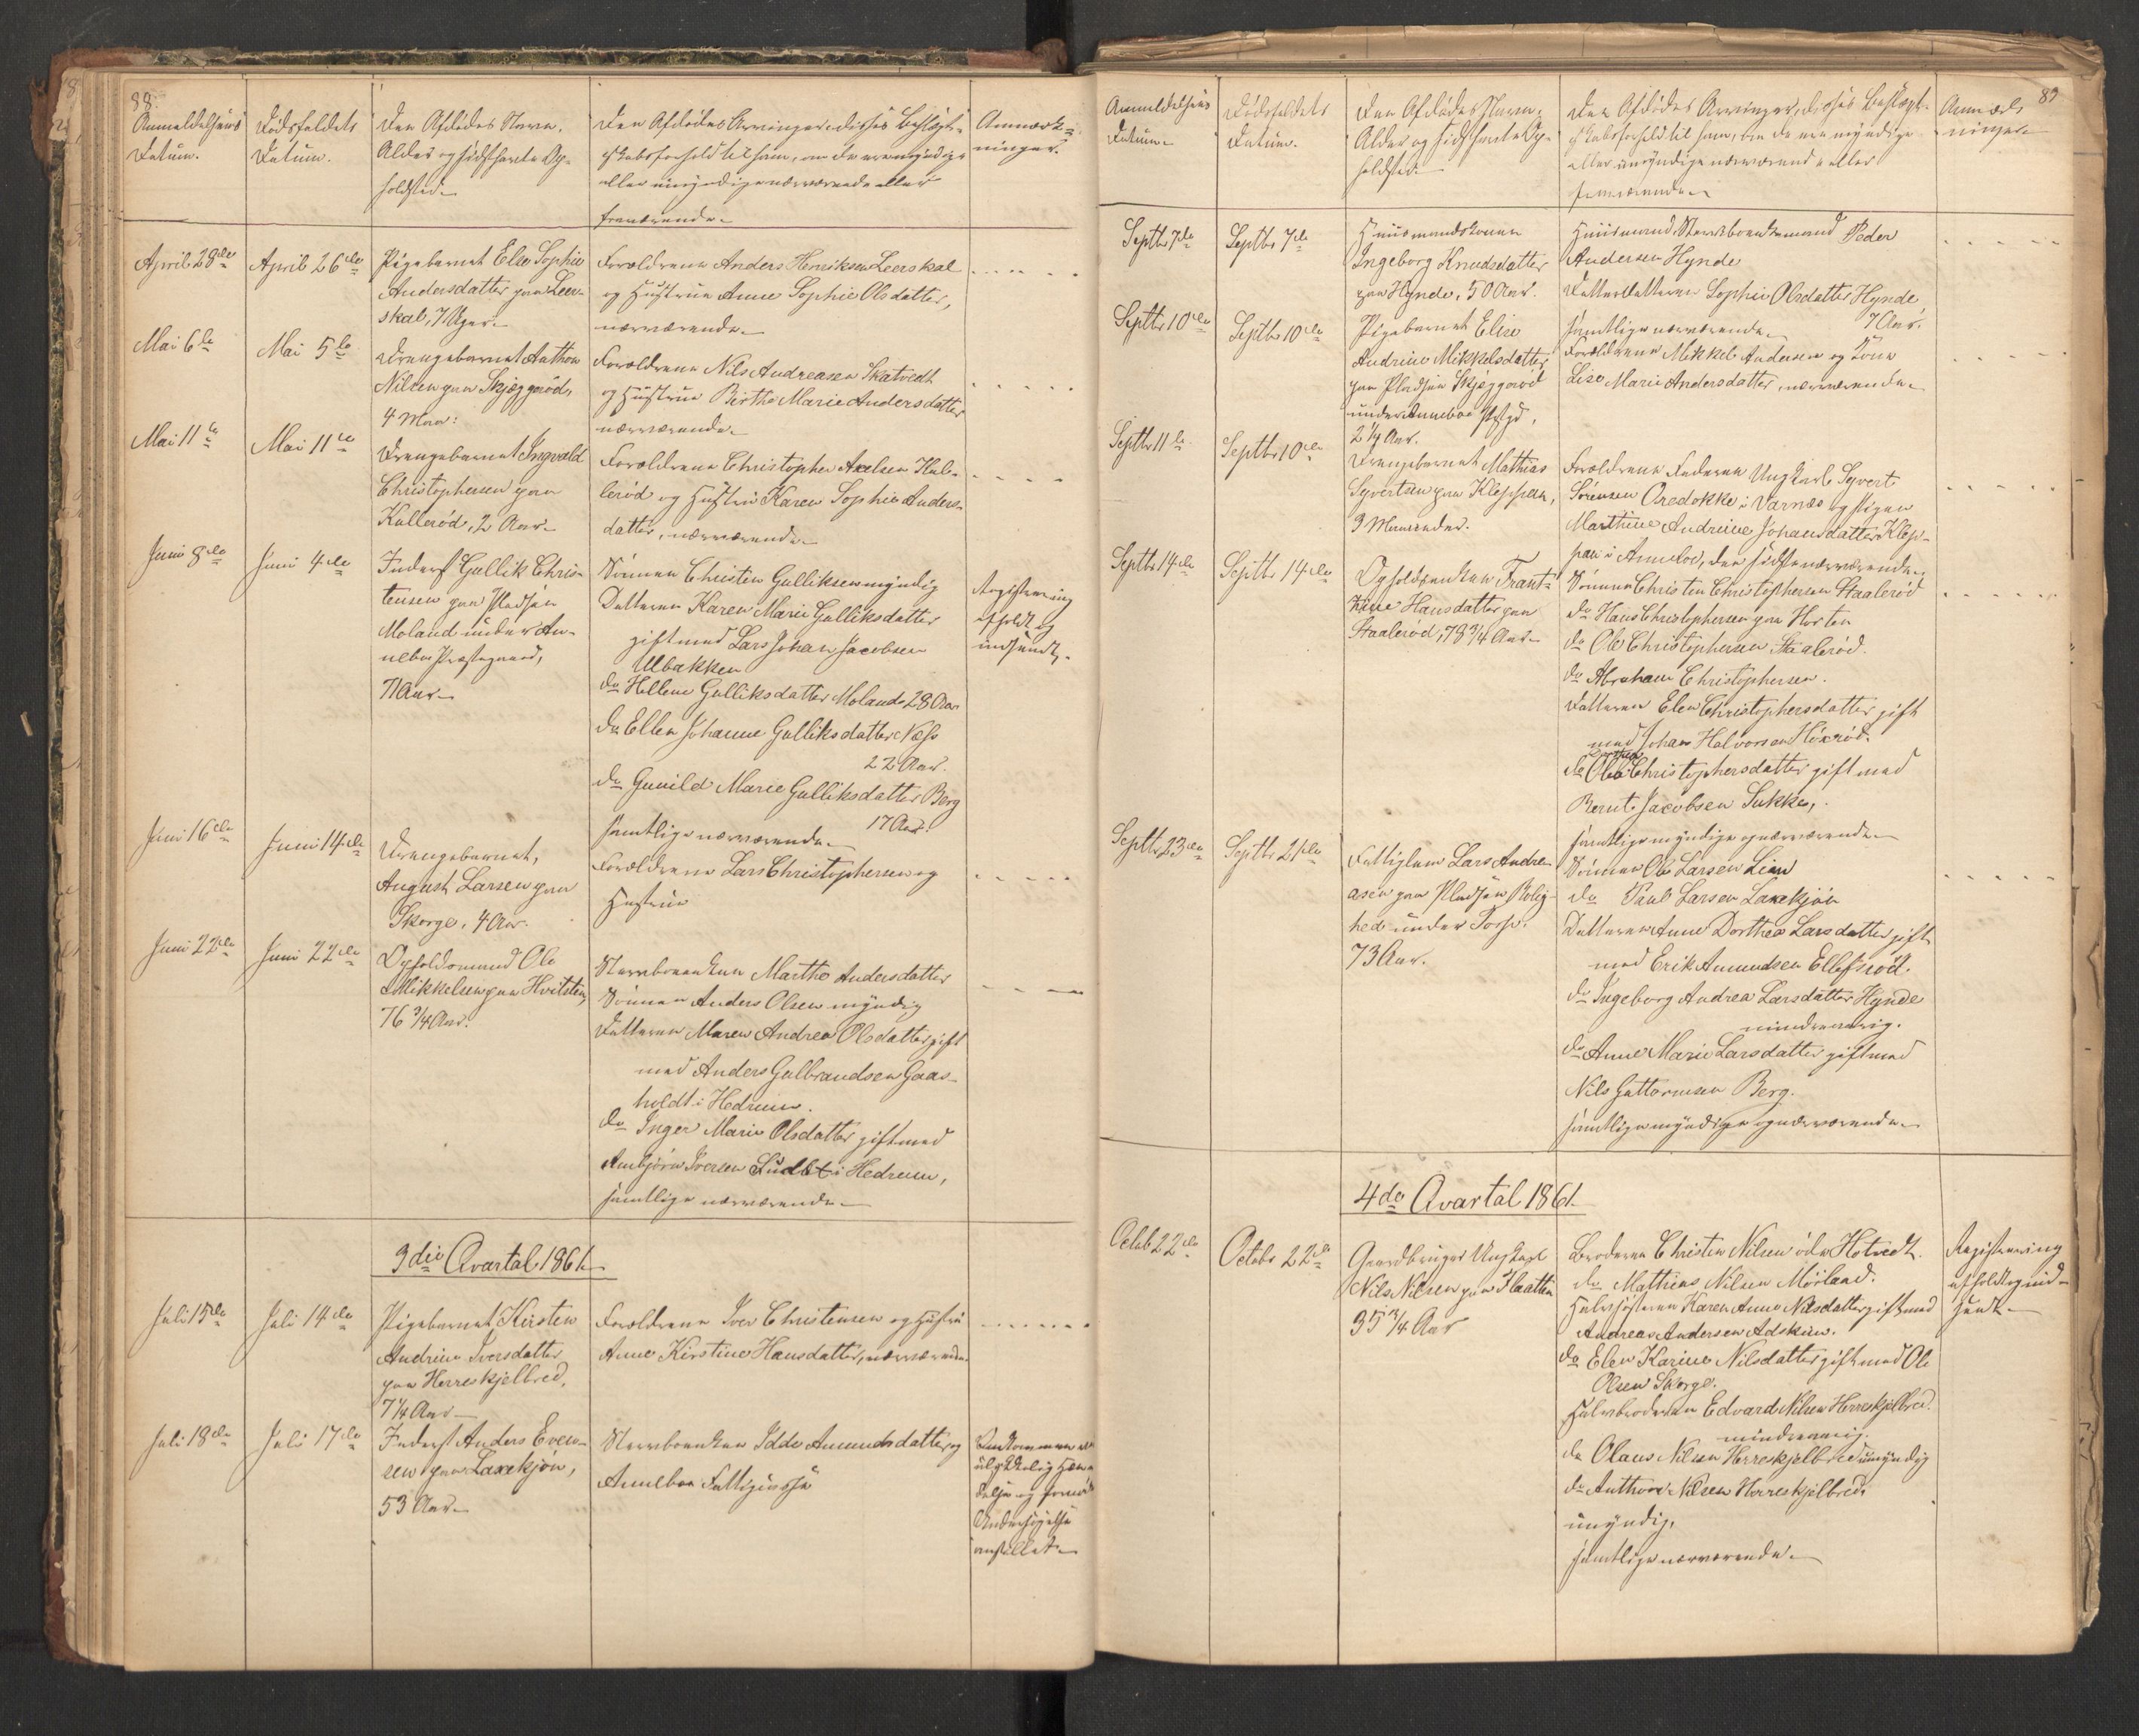 88.
Anmeldelsens
Datum.
Dødsfaldets
Datum.
Den Afdødes Navn,
Alder og sidsthavte Op-
holdsted.
Den Afdødes Arvinger, disses Beslægt-
skabsforhold til ham, om de ere myndige
eller umyndige nærværende eller
fraværende.
Anmærk-
ninger.
April 28de
April 26de
Pigebarnet Elen Sophie
Andersdatter paa Leer-
skal, 7 Uger.
Forældrene Anders Henriksen Leerskal
og Hustrue Anne Sophie Olsdatter,
nærværende.
Mai 6te
Mai 5te
Drengebarnet Anthon
Nilsen paa Skjæggerød,
4 Maan:
Forældrene Nils Andreasen Skatvedt
og Hustrue Birthe Marie Andersdatter
nærværende.
Mai 11te
Mai 11te
Drengebarnet Ingvald
Christophersen paa
Kullerød, 2 Aar.
Forældrene Christopher Axelsen Kul-
lerød og Hustru Karen Sophie Anders-
datter, nærværende.
Juni 8de
Juni 4de
Inderst Gullik Chris-
tensen paa Pladsen
Moland under An-
nebu Præstegaard,
71 Aar.
Sønnen Christen Gulliksen myndig
Datteren Karen Marie Gulliksdatter
gift med Lars Johan Jacobsen
Ulbakken
do Hellene Gulliksdatter Moland 28 Aar
do Ellen Johanne Gulliksdatter Næss
22 Aar.
do Gunild Marie Gulliksdatter Berg
17 Aar.
samtlige nærværende.
Registrering
afholdt og
indsendt.
Juni 16de
Juni 14de
Drengebarnet,
August Larsen paa
Skorge, 4 Aar.
Forældrene Lars Christophersen og
Hustrue
Juni 22de
Juni 22de
Opholdsmand Ole
Mikkelsen paa Hvitsten,
76 3/4 Aar.
Stervboenken Marthe Andersdatter
Sønnen Anders Olsen myndig
Datteren Maren Andrea Olsdatter gift
med Anders Gulbrandsen Gaas-
holdt i Hedrum.
do Inger Marie Olsdatter gift med
Ambjörn Iversen i Hedrum,
samtlige nærværende.
3die Qvartal 1861.
Juli 15de
Juli 14de
Pigebarnet Kirsten
Andrine Iversdatter
paa Herreskjelbred,
7 1/4 Aar
Forældrene Iver Christensen og Hustru
Anne Kirstine Hansdatter, nærværende
Juli 18de
Juli 17de
Inderst Anders Even-
sen paa Laxekjön,
53 Aar.
Stervboenken Idde Amundsdatter og
Annebu Fattigcasse
Omkommen ved
ulykkelig Hæn-
delse og
Undersøgelse
anstillet.
89
Anmeldelsens
Datum.
Dødsfaldets
Datum.
Den Afdødes Navn,
Alder og sidsthavte Op-
holdsted.
Den Afdødes Arvinger, disses Beslægt-
skabsforhold til ham, om de ere myndige
eller umyndige nærværende eller
fraværende.
Anmærk-
ninger.
Septbr 7de
Septbr 7de
Huusmandskonen
Ingeborg Knudsdatter
paa Hynde, 50 Aar.
Huusmand Stervboenkemand Peder
Andersen Hynde
Datterdatteren Sophie Olsdatter Hynde
7 Aar.
samtlige nærværende.
Septbr 10de
Septbr 10de
Pigebarnet Elise
Andrine Mikkelsdatter
paa Pladsen Skjæggerød
under Annebu Præstgd,
2 1/4 Aar.
Forældrene Mikkel Andersen og Kone
Lise Marie Andersdatter, nærværende.
Septbr 11te
Septbr 10de
Drengebarnet Mathias
Syvertsen paa Kleppan,
9 Maaneder.
Forældrene Faderen Ungkarl Syvert
Sörensen Oredokke i Varnæs og Pigen
Marthine Andrine Johansdatter Klep-
pan i Annebo, den sidste nærværende.
Septbr 14de
Septbr 14de
Opholdsenken Frant-
zine Hansdatter paa
Staalerød, 78 3/4 Aar.
Sønnen Christen Christophersen Staalerød
do Hans Christophersen paa Horten
do Ole Christophersen Staalerød.
do Abraham Christophersen.
Datteren Elen Christophersdatter gift
med Johan Halvorsen Hörröd.
do Christophersdatter gift med
Bernt Jacobsen Sukke,
samtlige myndige og nærværende.
Septbr 23de
Septbr 21de
Fattiglem Lars Andre-
asen paa Pladsen Rolig-
hed under Torp.
73 Aar.
Sønnen Ole Larsen Lien
do Paul Larsen Laxekjön
Datteren Anne Dorthea Larsdatter gift
med Erik Amundsen Ellefsröd.
do Ingeborg Andrea Larsdatter Hynde
mindreaarig.
do Anne Marie Larsdatter gift med
Nils Guttormsen Berg.
samtlige myndige og nærværende.
4de Qvartal 1861.
Octob 22de
Octobr 22de
Gaardbruger Ungkarl
Nils Nilsen paa Flaatten
35 3/4 Aar
Broderen Christen Nilsen Hotvedt.
do Mathias Nilsen Mörland.
Halvsøsteren Karen Anne Nilsdatter gift med
Andreas Andersen Adskin.
do Elen Karine Nilsdatter gift med Ole
Olsen Skorge.
Halvbroderen Edvard Nilsen Herreskjelbred.
mindreaarig.
do Olaus Nilsen Herreskjelbred umyndig
do Anthon Nilsen Herreskjelbred
umyndig,
samtlige nærværende.
Registrering
afholdt og ind-
sendt.